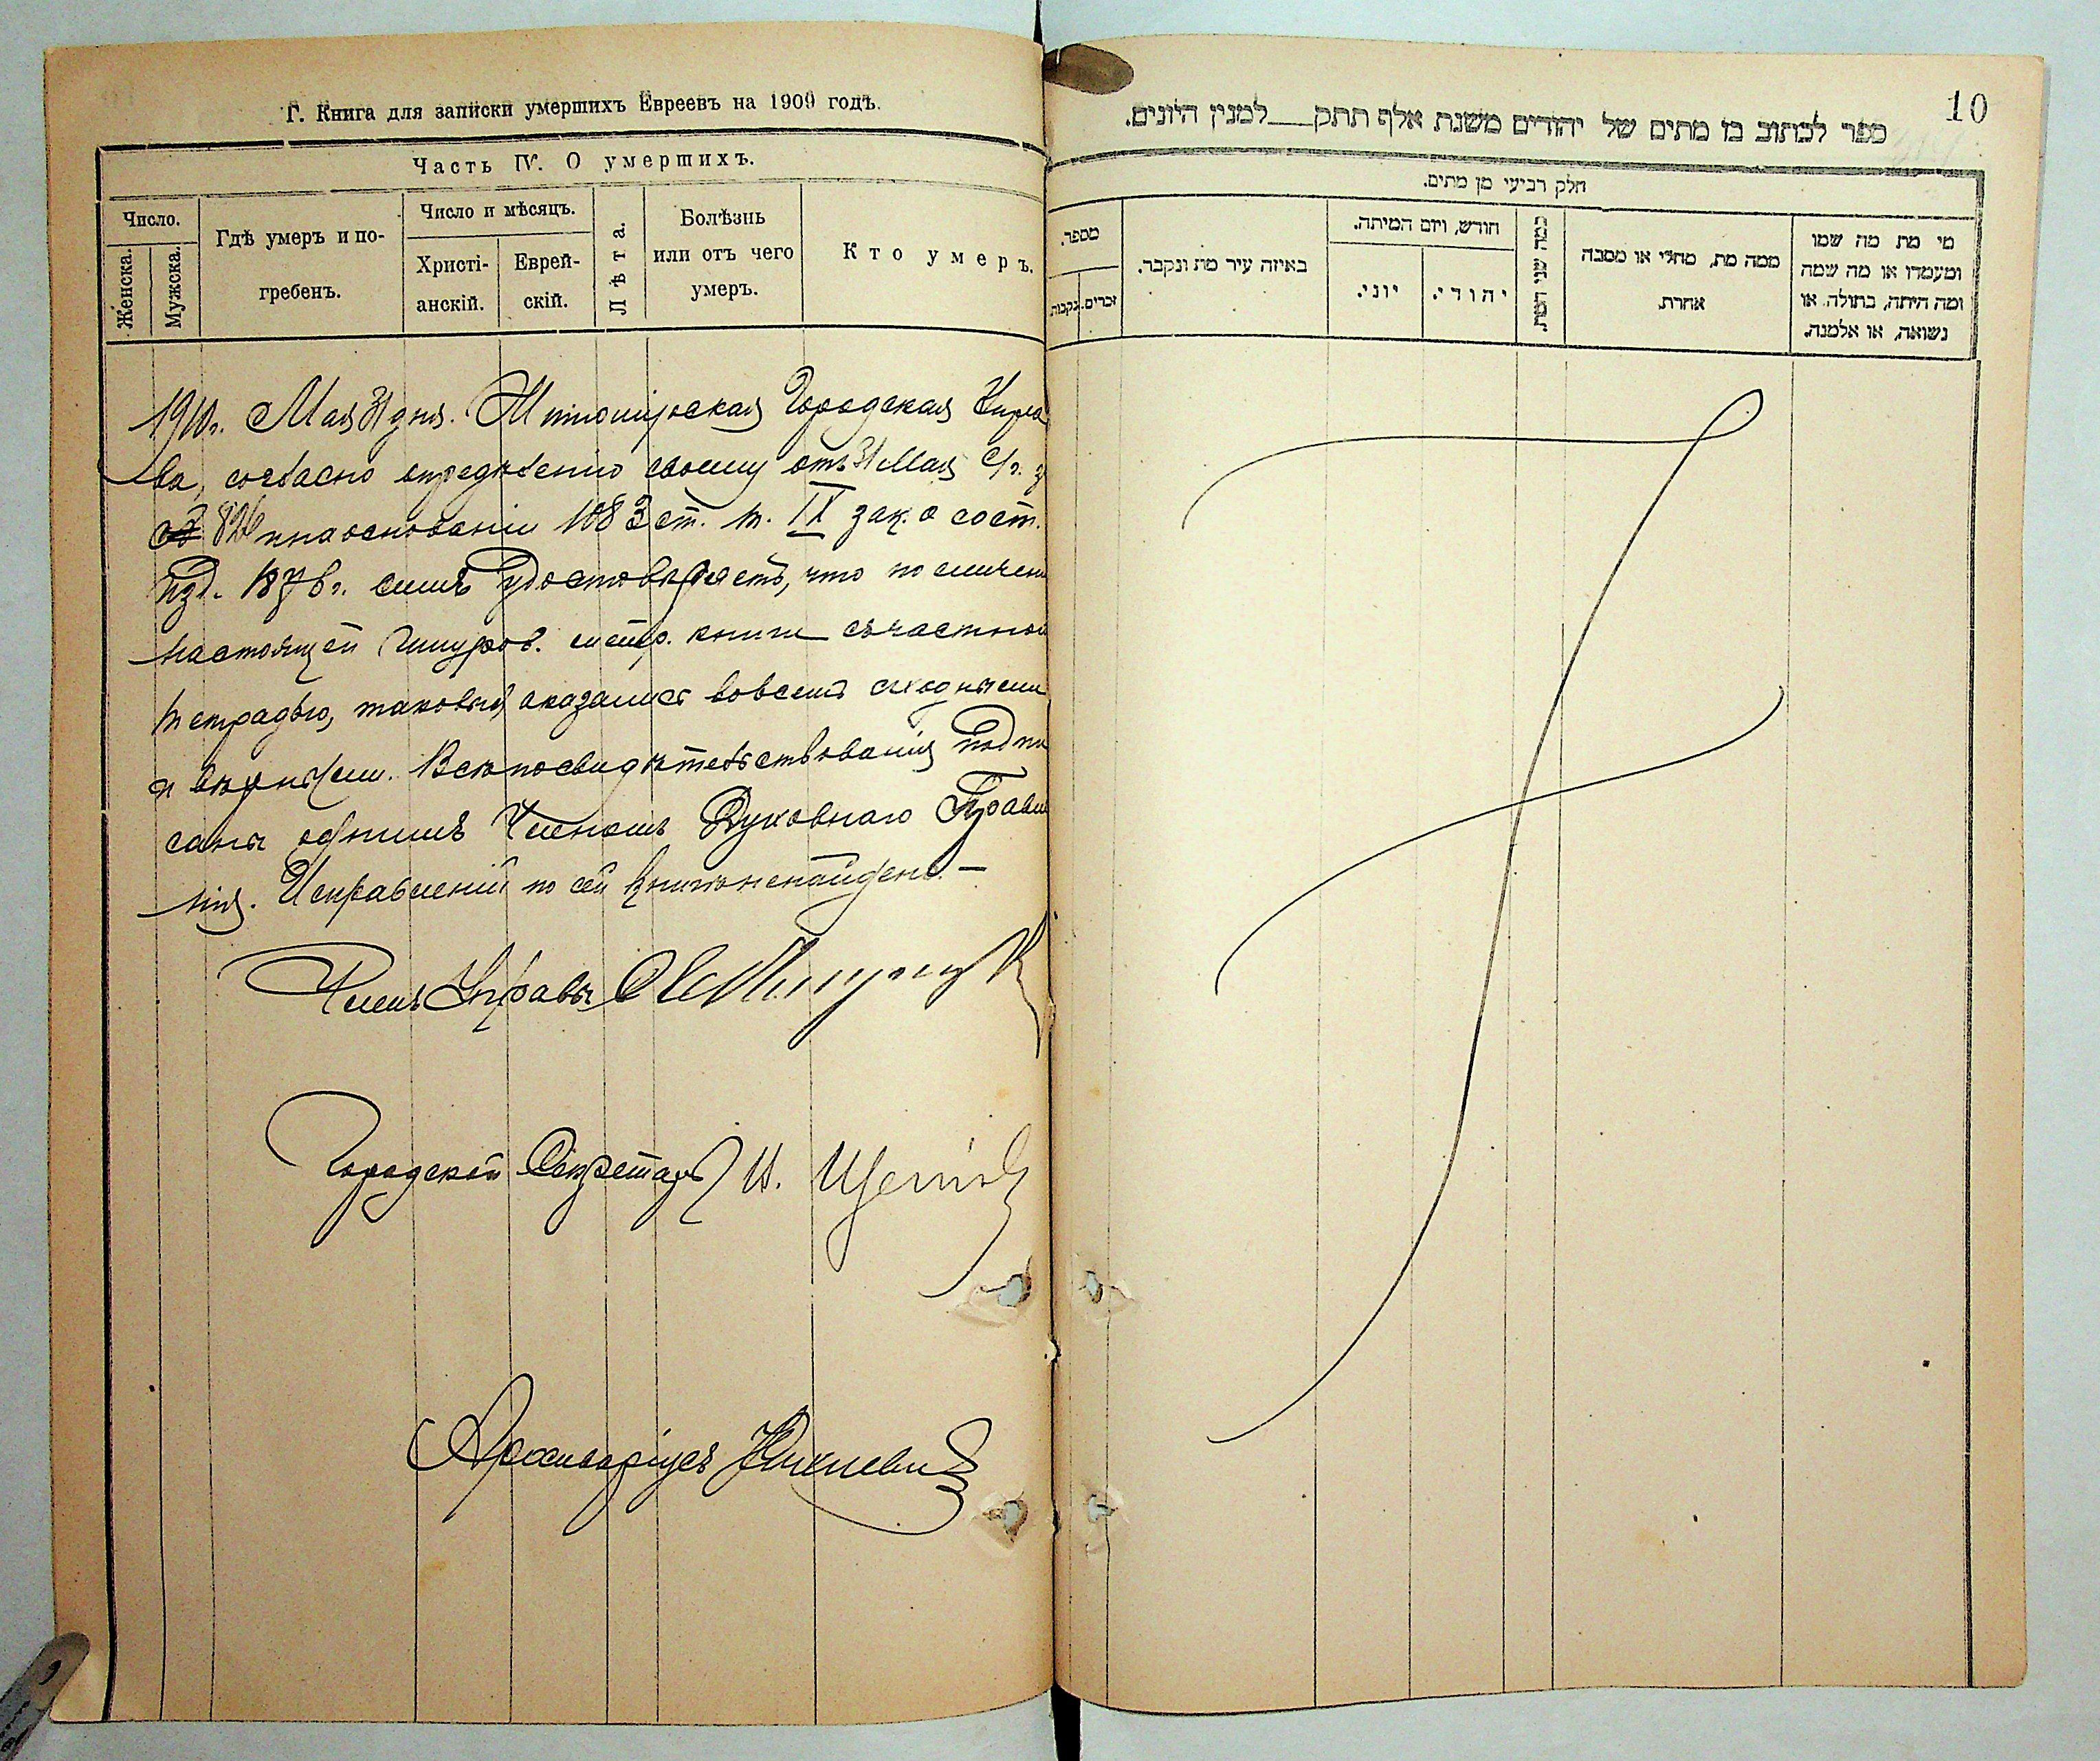 Г. Книга для записки умершихъ Евреевъ на 1909 годъ.
Часть IV. О умершихъ.
Число.
Женска.
Мужска.
Гдѣ умеръ и по-
гребенъ.
Число и мѣсяцъ.
Христі-
анскій.
Еврей-
скій.
Лѣта.
Болѣзнь
или отъ чего
умеръ.
Кто умеръ.
1910г. Мая 31 дня. Житомірская Городская Упра
ва, согласно опредѣленію своему отъ 31 Мая с/г. з
826 и на основаніи 1083 ст. т. IX зак. о сост.
изд. 1876г. симъ удостовѣряетъ, что по сличені
настоящей шнуров. метр. книги съ частной
тетрадью, таковыя оказались вовсемъ сходными
и вѣрными. Всѣ посвидѣтельствованія подпи
саны однимъ Членомъ Духовнаго Правле
нія. Исправленій по сей книгѣ не найдено. —
Членъ Управы
Городской Секретарь И.
Архиваріусъ
10
ספר לכתוב בו מתים של יהודים משנת אלף תתק___למנין היונים.
חלק רביעי מן מתים.
מספר.
זכרים.
נקבות
באיזה עיר מת ונקבר.
חודש, ויום המיתה.
יוני.
יהודי.
כמה שני המת.
ממה מת, מחלי או מסבה
אחרת.
מי מת מה שמו
ומעמדו או מה שמה
ומה היתה, בתולה, או
נשואה, או אלמנה.